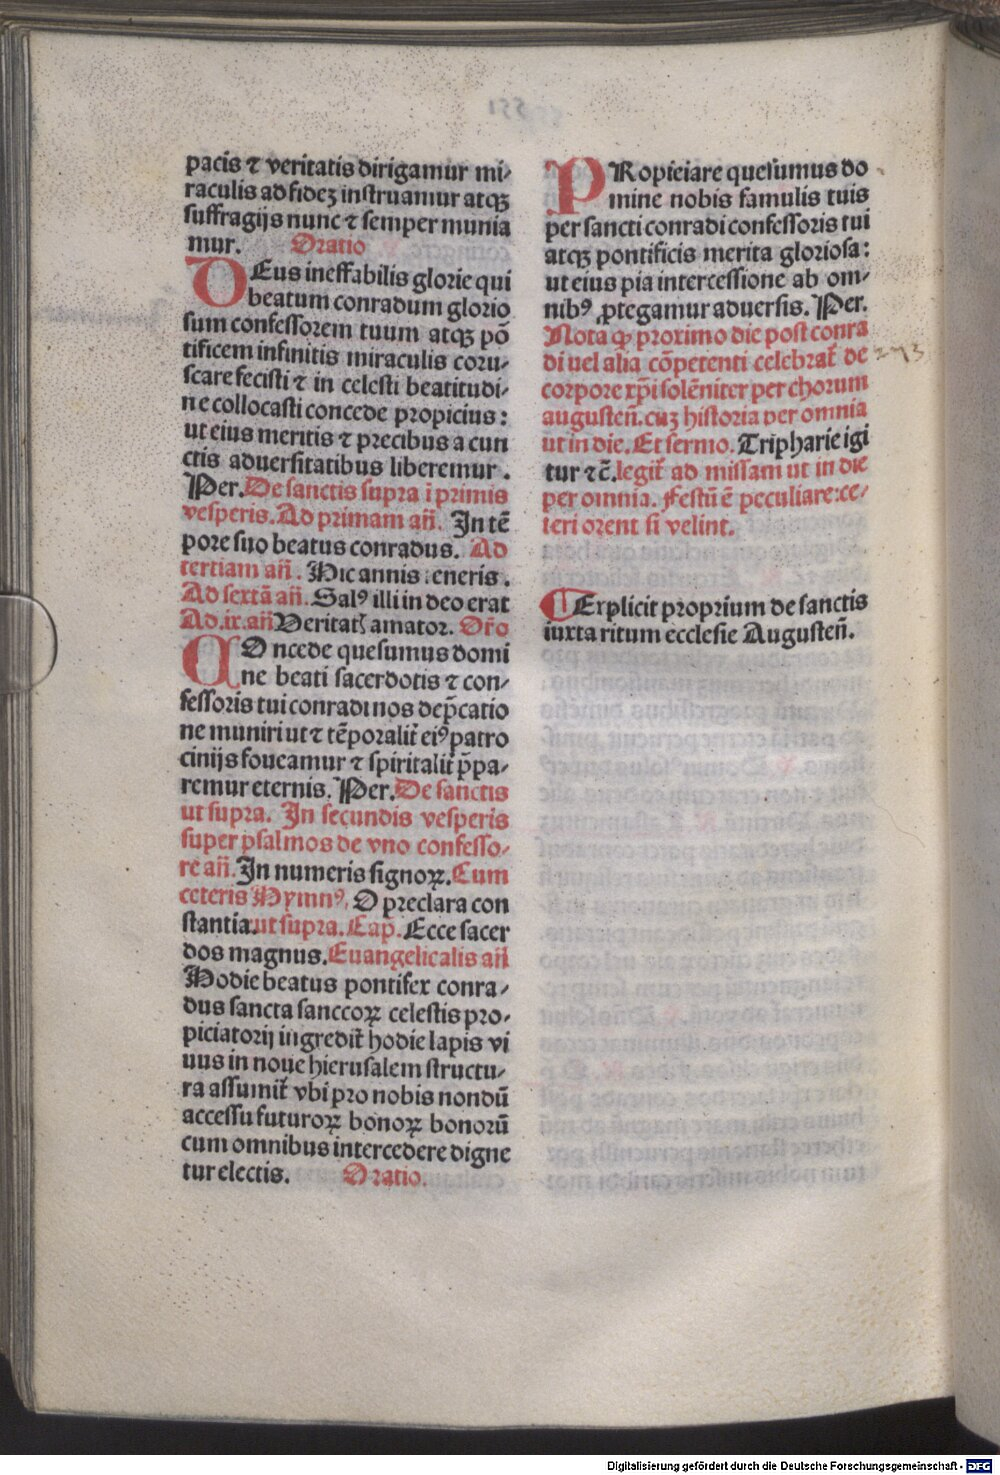 pacis ⁊ veritatis dirigamur mi⸗
raculis ad fideʒ instruamur atqꝫ
suffragijs nunc ⁊ semper munia
mur. Oratio
DEus ineffabilis glorie qui
beatum conradum glorio
sum confessorem tuum atqꝫ põ
tificem infinitis miraculis coru⸗
scare fecisti ⁊ in celesti beatitudi⸗
ne collocasti concede propicius:
ut eius meritis ⁊ precibus a cun
ctis aduersitatibus liberemur.
Per. De sanctis supra ĩ primis
vesperis. Ad primam añ. In tẽ
pore suo beatus conradus. Ad
tertiam añ. Hic annis teneris.
Ad sextã añ. Salꝰ illi in deo erat
Ad .ix. añ Veritatꝭ amator. Orõ
COncede quesumus domi
ne beati sacerdotis ⁊ con⸗
fessoris tui conradi nos dep̃catio
ne muniri ut ⁊ tẽporalit̃ eiꝰ patro
cinijs foueamur ⁊ spiritalit̃ p̃pa⸗
remur eternis. Per. De sanctis
ut supra. In secundis vesperis
super psalmos de vno confesso⸗
re añ. In numeris signoꝝ. Cum
ceteris Hymnꝰ. O preclara con
stantia. ut supra. Cap̃. Ecce sacer
dos magnus. Euangelicalis añ
Hodie beatus pontifex conra⸗
dus sancta sanccoꝝ celestis pro⸗
piciatorij ingredit̃ hodie lapis vi
uus in noue hierusalem structu⸗
ra assumit̃ vbi pro nobis nondũ
accessu futuroꝝ bonoꝝ bonorũ
cum omnibus intercedere digne
tur electis. Oratio.
PRopiciare quesumus do
mine nobis famulis tuis
per sancti conradi confessoris tui
atqꝫ pontificis merita gloriosa:
ut eius pia intercessione ab om⸗
nibꝰ ꝓtegamur aduersis. Per.
Nota ꝙ proximo die post conra
di uel alia cõpetenti celebrat̃ de
corpore xp̃i solẽniter per chorum
augusteñ. cuʒ historia per omnia
ut in die. Et sermo. Tripharie igi
tur ⁊c̃. legit̃ ad missam ut in die
per omnia. Festũ ẽ peculiare: ce⸗
teri orent si velint.
¶ Explicit proprium de sanctis
iuxta ritum ecclesie Augusteñ.
Digitalisierung gefördert durch die Deutsche Forschungsgemeinschaft - DFG